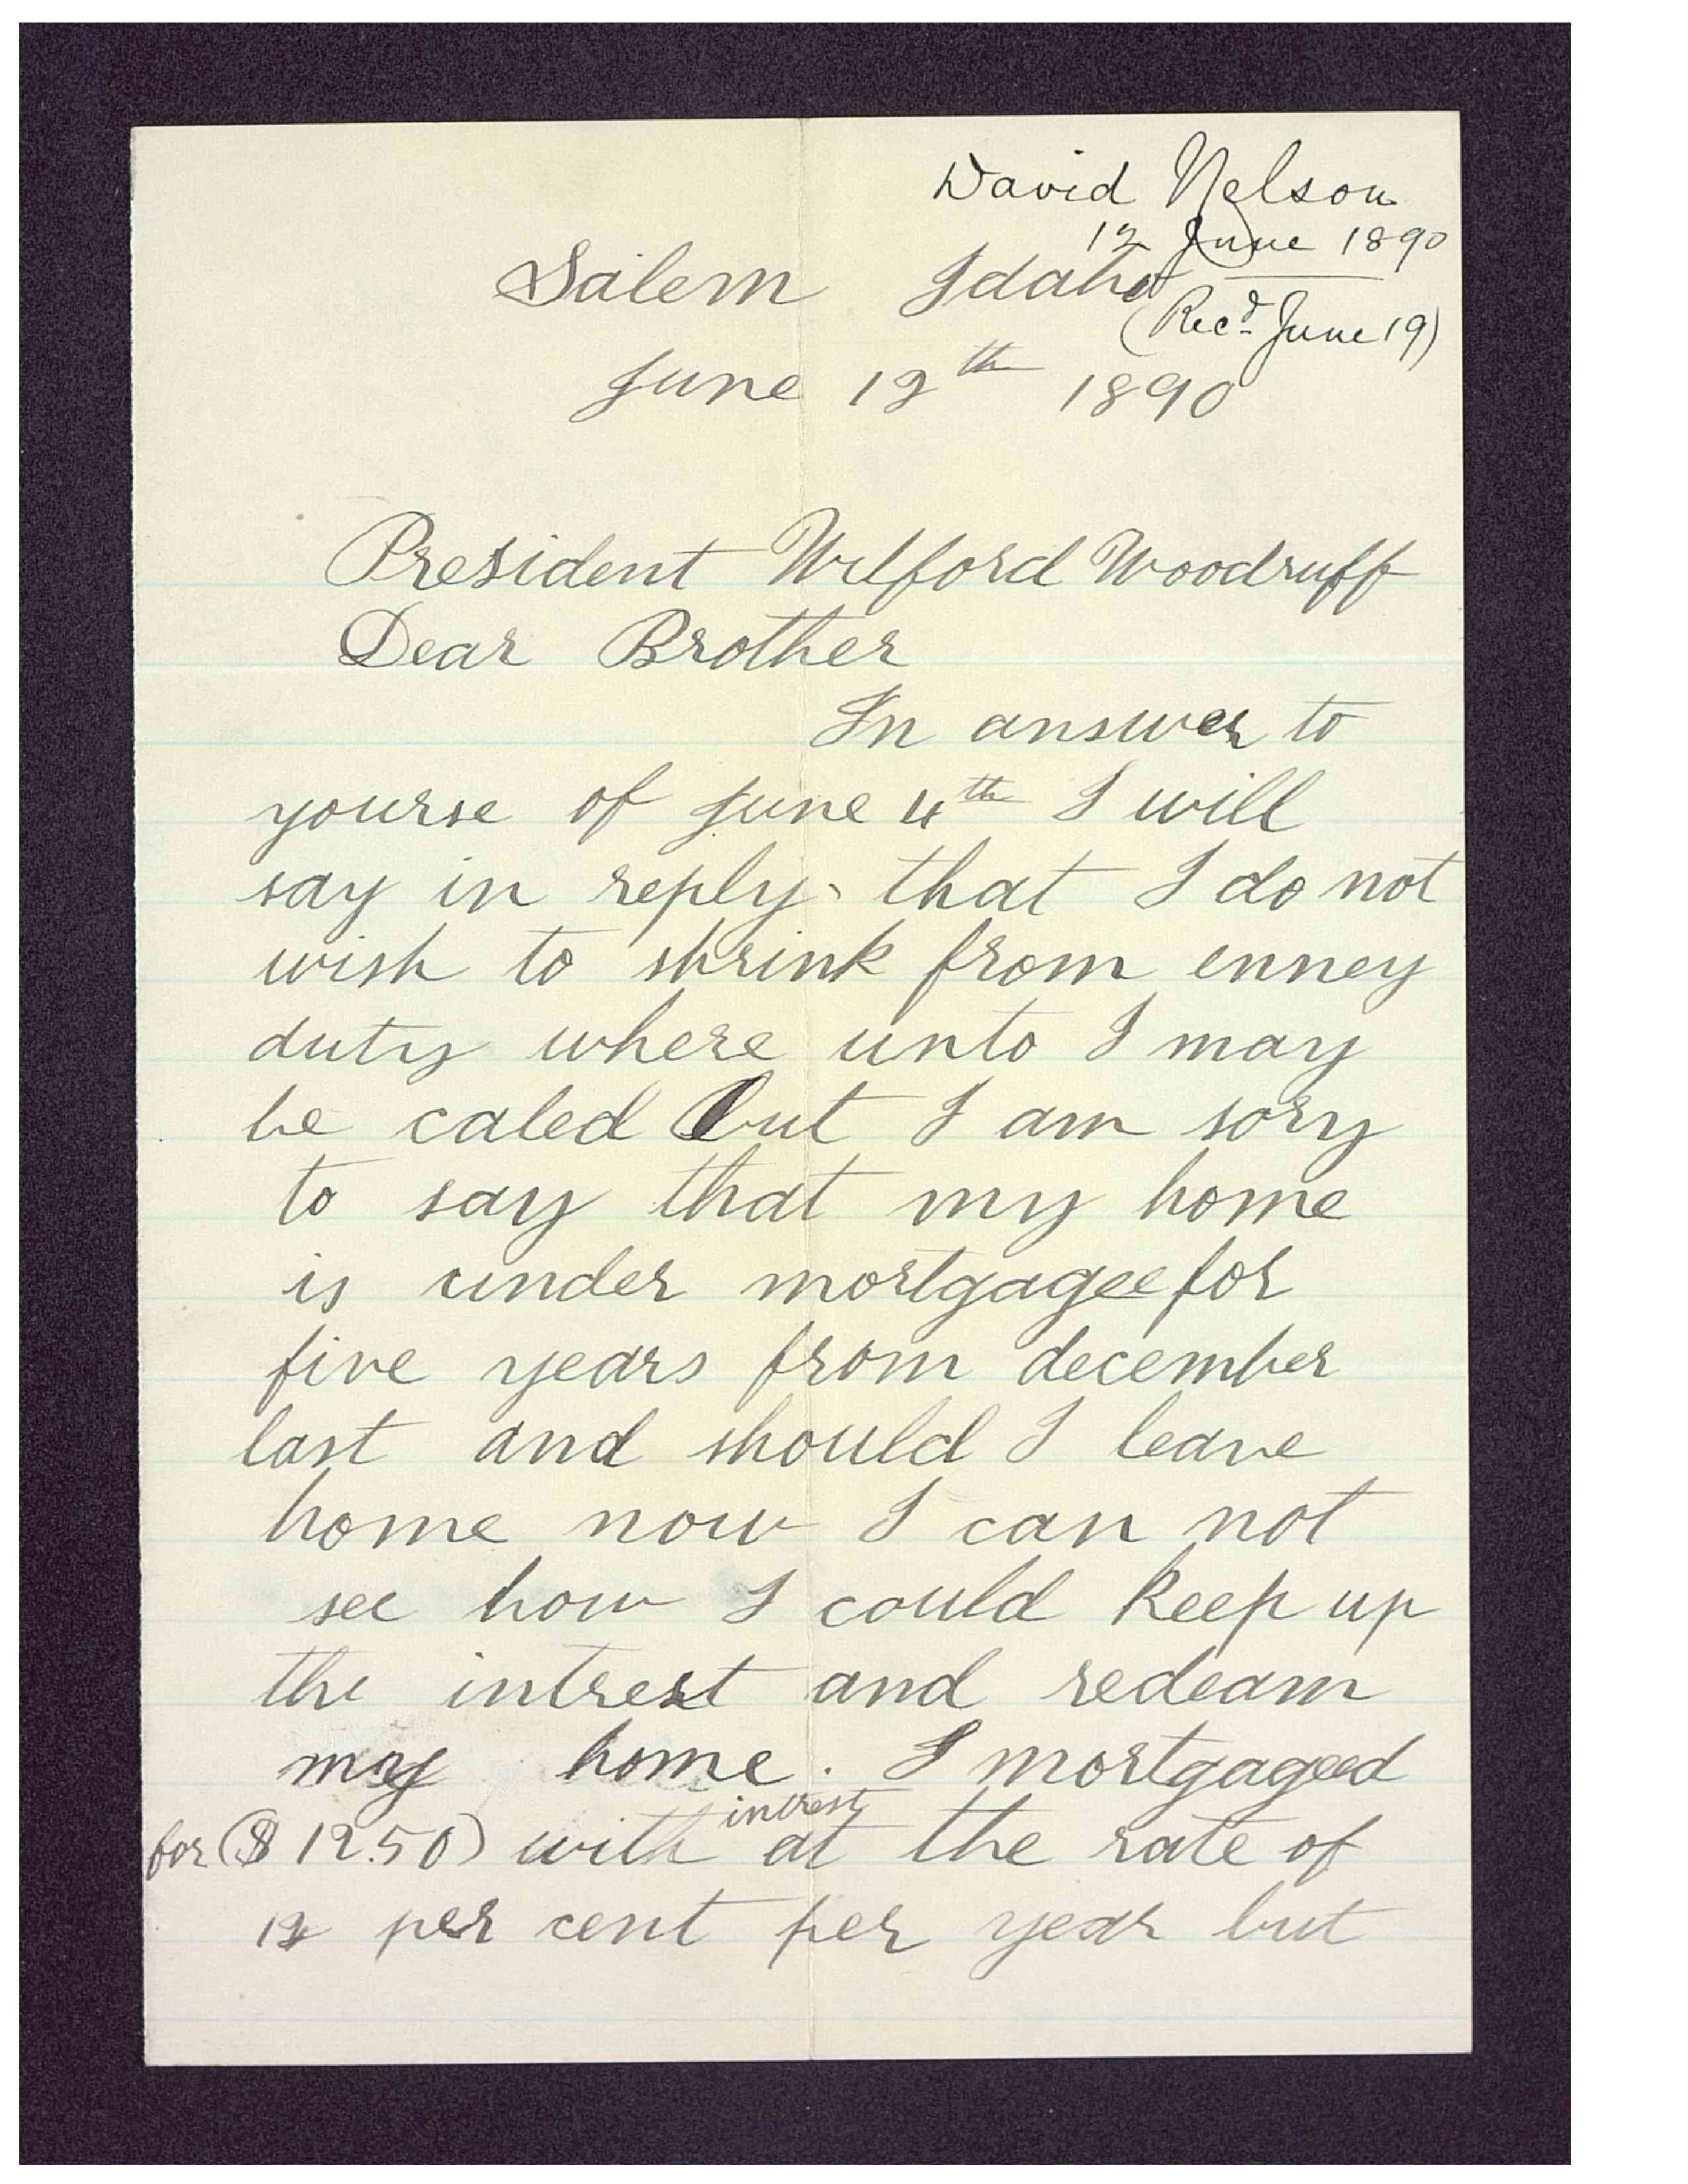 David Nelson
12 June 1890
Salem Idaho
(Recd June 19)
June 12th 1890
President Wilford Woodruff
Dear Brother
In answer to
yourse of June 4th I will
say in reply. that I do not
wish to shrink from enney
duty where unto I may
be caled but I am sory
to say that my home
is under mortgagee for
five years from december
last and should I leave
home now I can not
see how I could keep up
the intrest and redeam
my home. I mortgaged
intrest
for ($1250) with at the rate of
12 per cent per year but